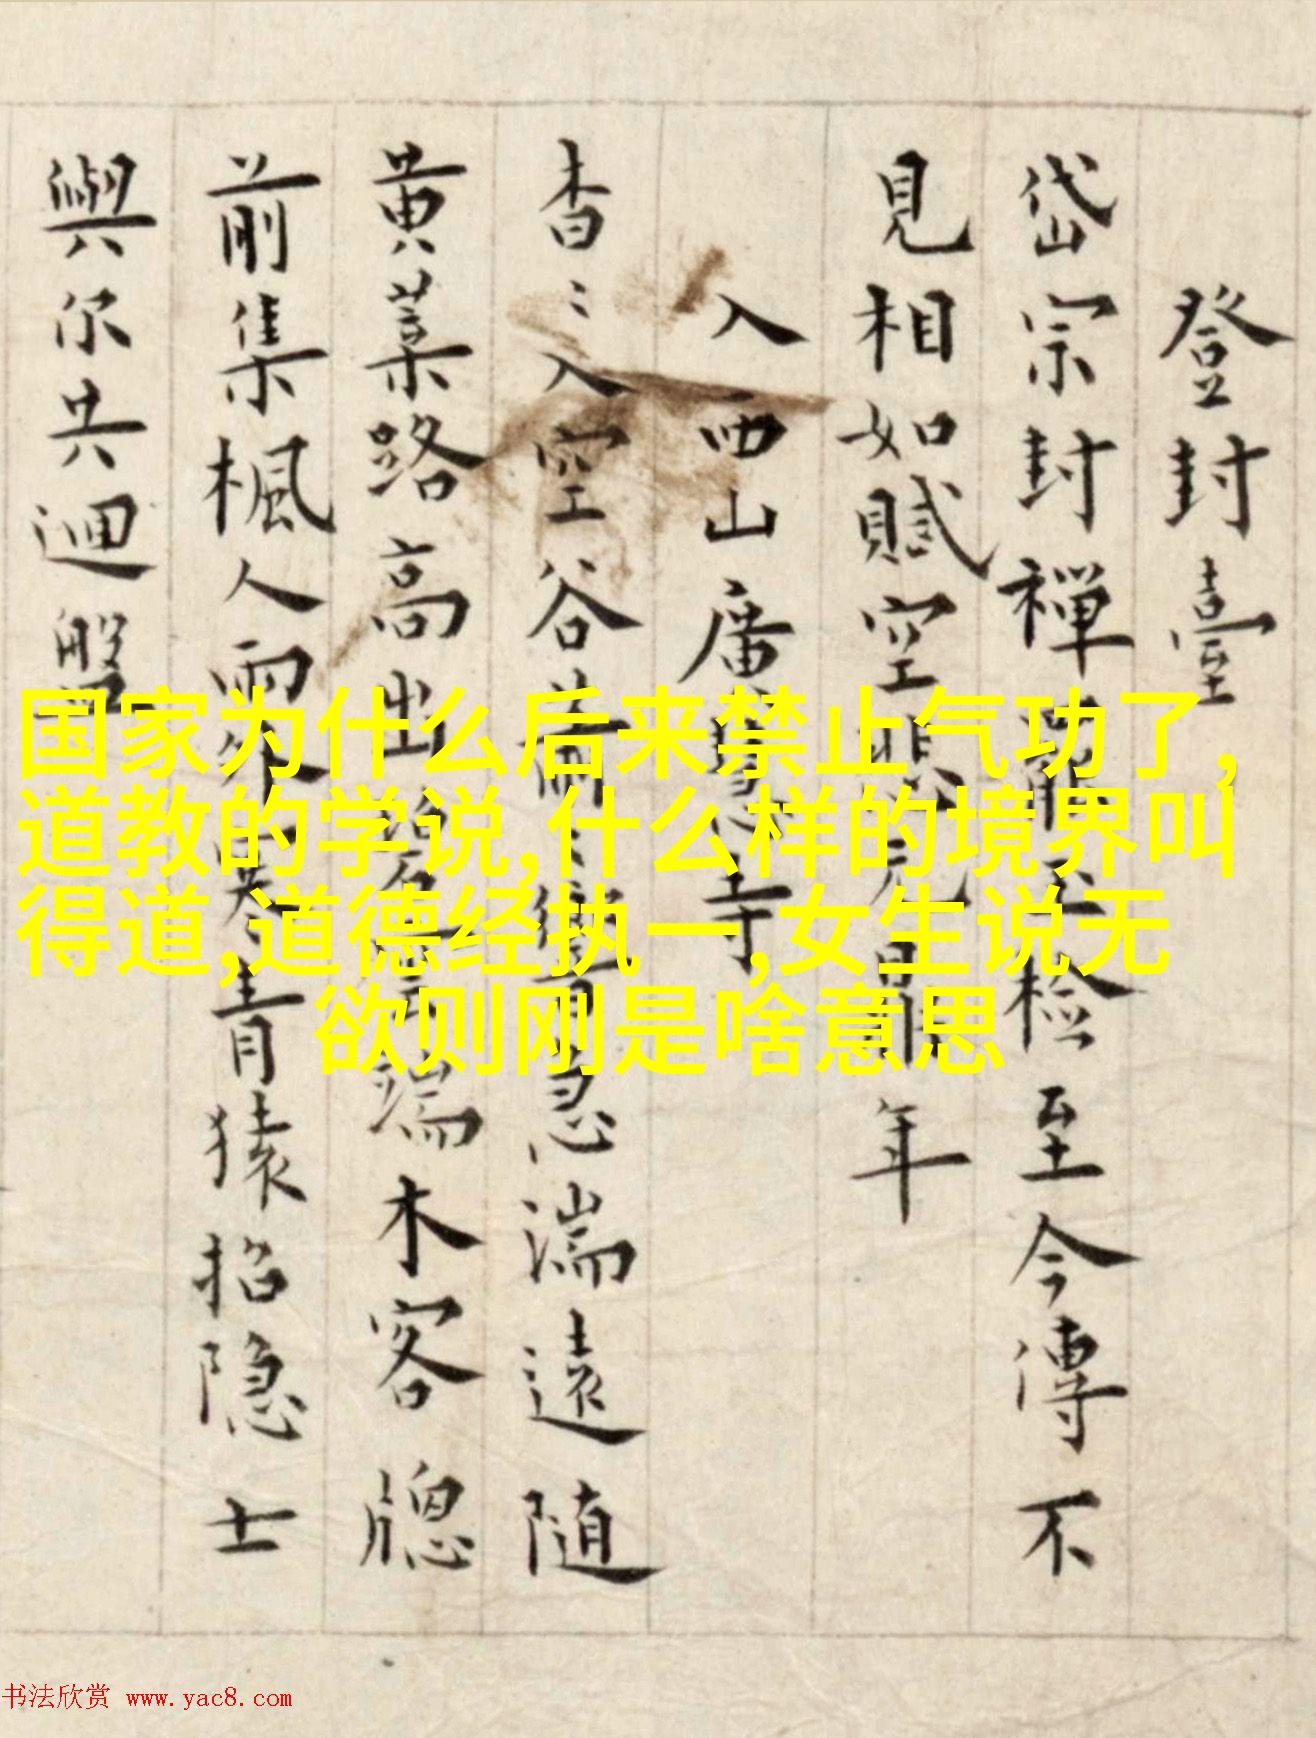 登封臺
岱宗封禪
檢至今傳不
見相如賦空
年
入西山廣
寺
杳〻入空谷
急湍遠随
黄葉路高出
端木客牕
前集楓人雨外
青猿招隐士
與尔共迴盤
国家为什么后来禁止气功了,
道教的学说,什么样的境界叫
得道,道德经执一,女生说无
欲则刚是啥意思
书法欣赏 www.yac8.com